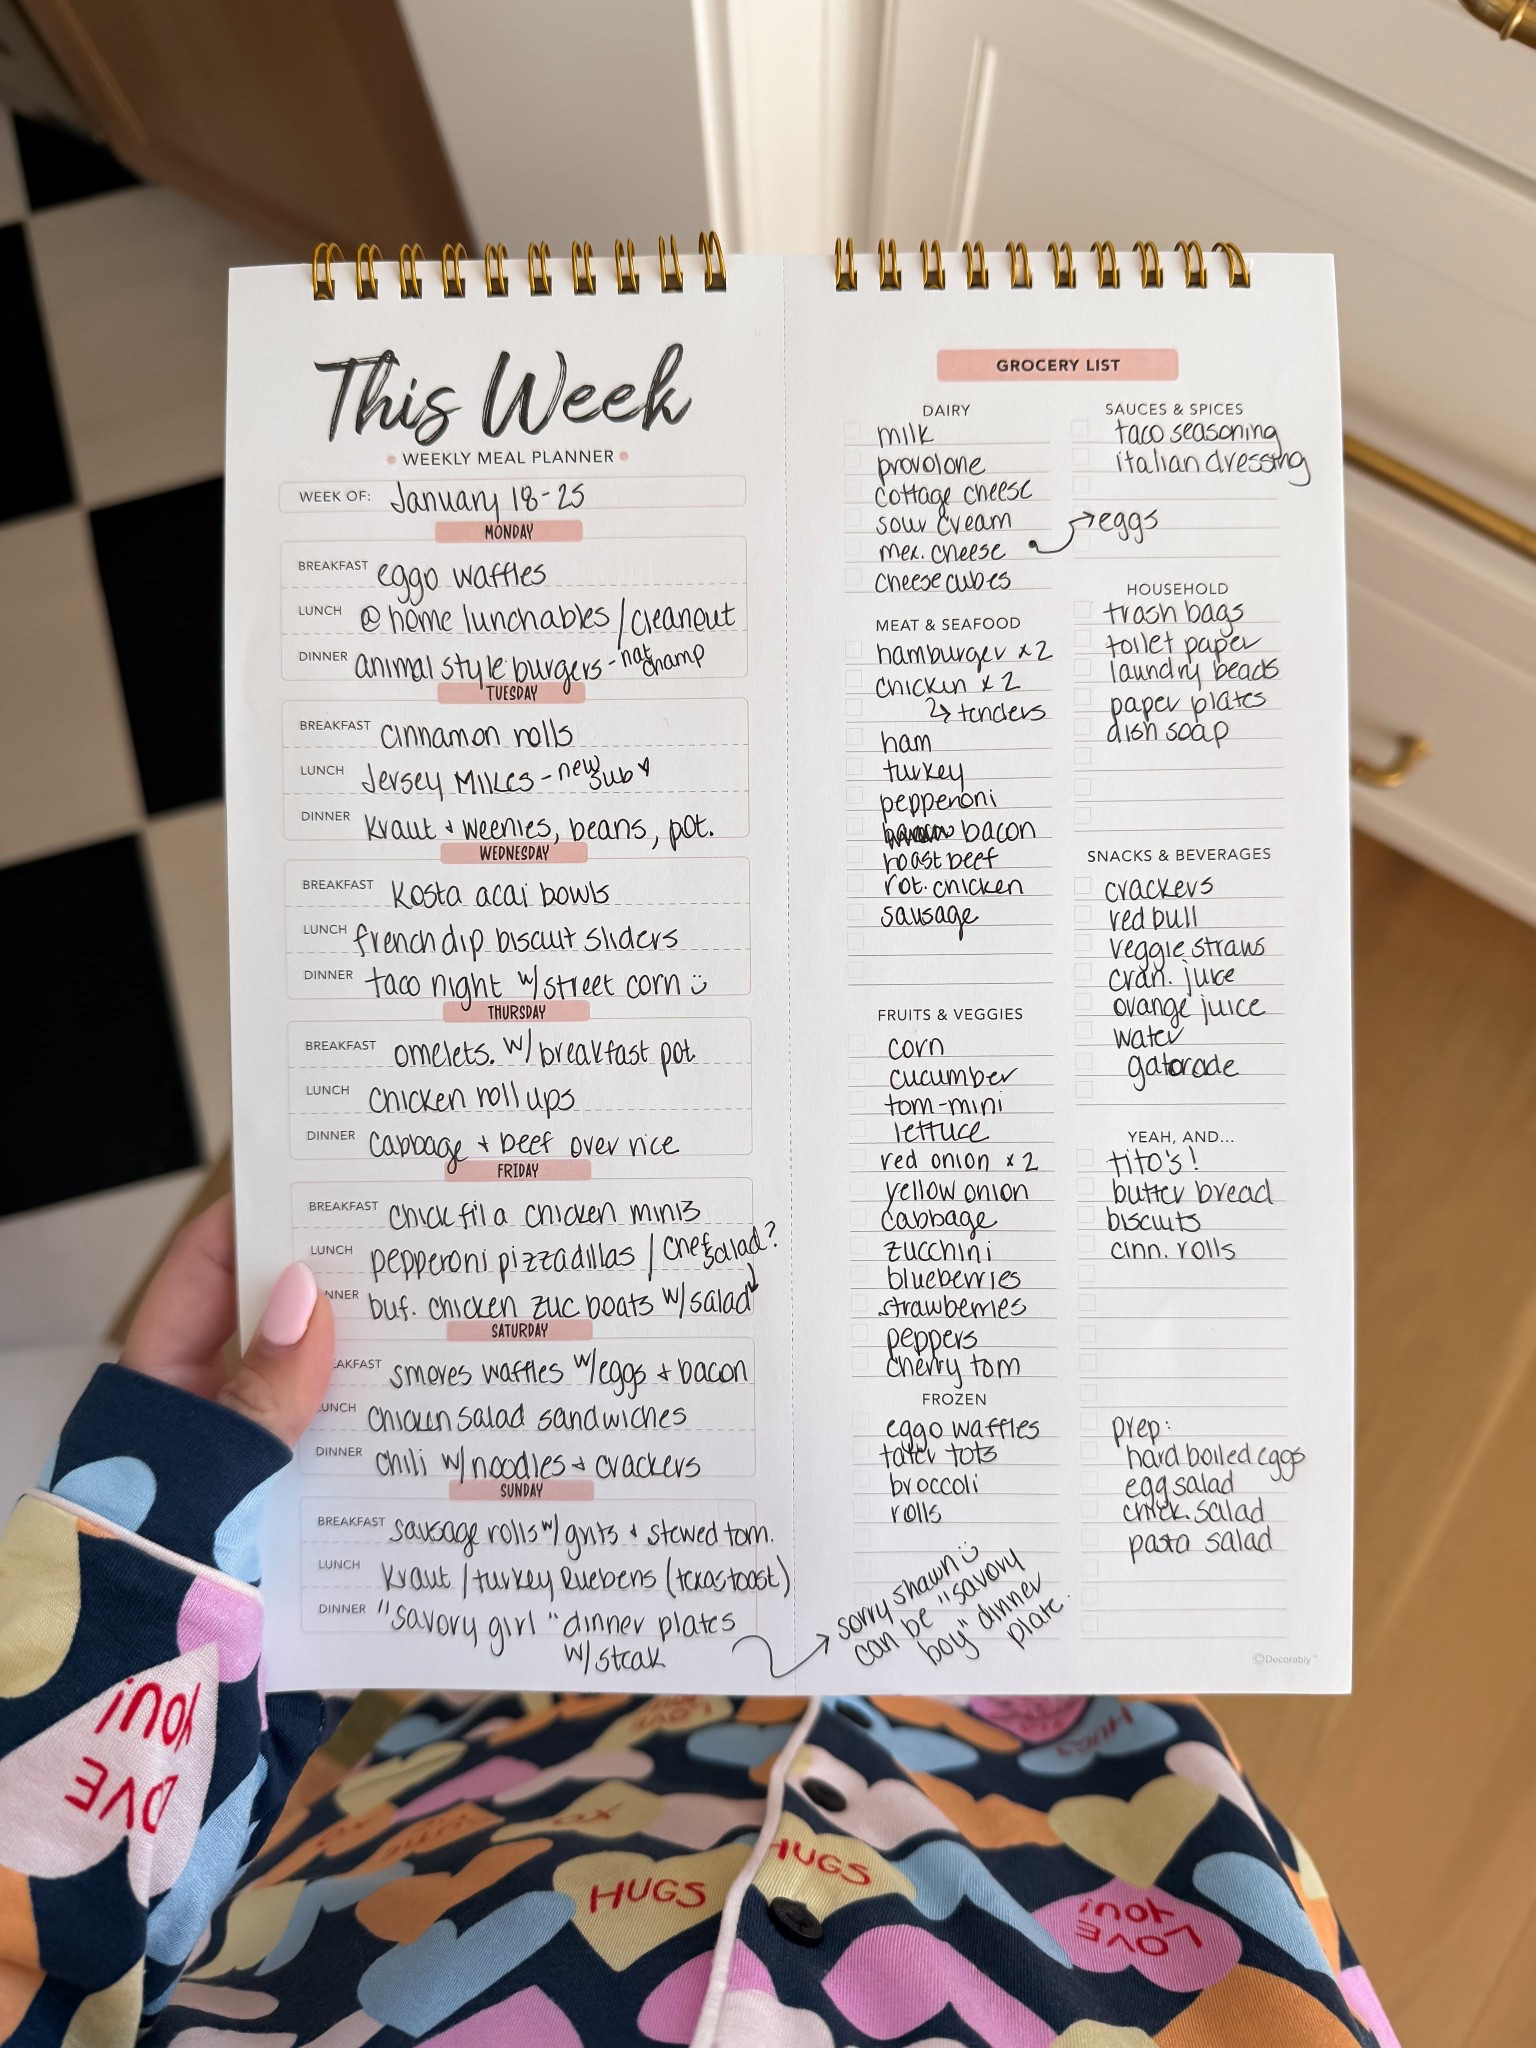 This Week
WEEKLY MEAL PLANNER
WEEK OF: January 18-25
MONDAY
BREAKFAST eggo waffles
LUNCH @ home lunchables / cleanout
DINNER animal style burgers - nat champ
TUESDAY
BREAKFAST cinnamon rolls
LUNCH Jersey Mikes - new sub ♥
DINNER Kraut + weenies, beans, pot.
WEDNESDAY
BREAKFAST Kosta acai bowls
LUNCH french dip biscuit sliders
DINNER taco night w/ street corn :)
THURSDAY
BREAKFAST omelets. w/ breakfast pot
LUNCH chicken roll ups
DINNER Cabbage + beef over rice
FRIDAY
BREAKFAST chick fil a chicken minis
LUNCH pepperoni pizzadillas / chef salad?
NNER buf. chicken zuc boats w/ salad
SATURDAY
EAKFAST smores waffles w/ eggs + bacon
UNCH chicken salad sandwiches
DINNER chili w/ noodles + crackers
SUNDAY
BREAKFAST sausage rolls w/ grits + stewed tom.
LUNCH Kraut / turkey Ruebens (texas toast)
DINNER "savory girl" dinner plates
w/ steak
GROCERY LIST
DAIRY
milk
provolone
cottage cheese
sour cream
mex. cheese
cheese cubes
MEAT & SEAFOOD
hamburger x 2
chicken x 2
↳ tenders
ham
turkey
pepperoni
bacon
roast beef
rot. chicken
sausage
FRUITS & VEGGIES
corn
cucumber
tom-mini
lettuce
red onion x 2
yellow onion
cabbage
zucchini
blueberries
strawberries
peppers
cherry tom
FROZEN
eggo waffles
tater tots
broccoli
rolls
sorry shawn :)
can be "savory
boy" dinner
plate.
SAUCES & SPICES
taco seasoning
italian dressing
eggs
HOUSEHOLD
trash bags
toilet paper
laundry beads
paper plates
dish soap
SNACKS & BEVERAGES
crackers
red bull
veggie straws
cran. juice
orange juice
water
gatorade
YEAH, AND...
tito's!
butter bread
biscuits
cinn. rolls
prep:
hard boiled eggs
egg salad
chick. salad
pasta salad
©Decorably™
LOVE
YOU!
HUGS
HUGS
LOVE
YOU!
HUGS